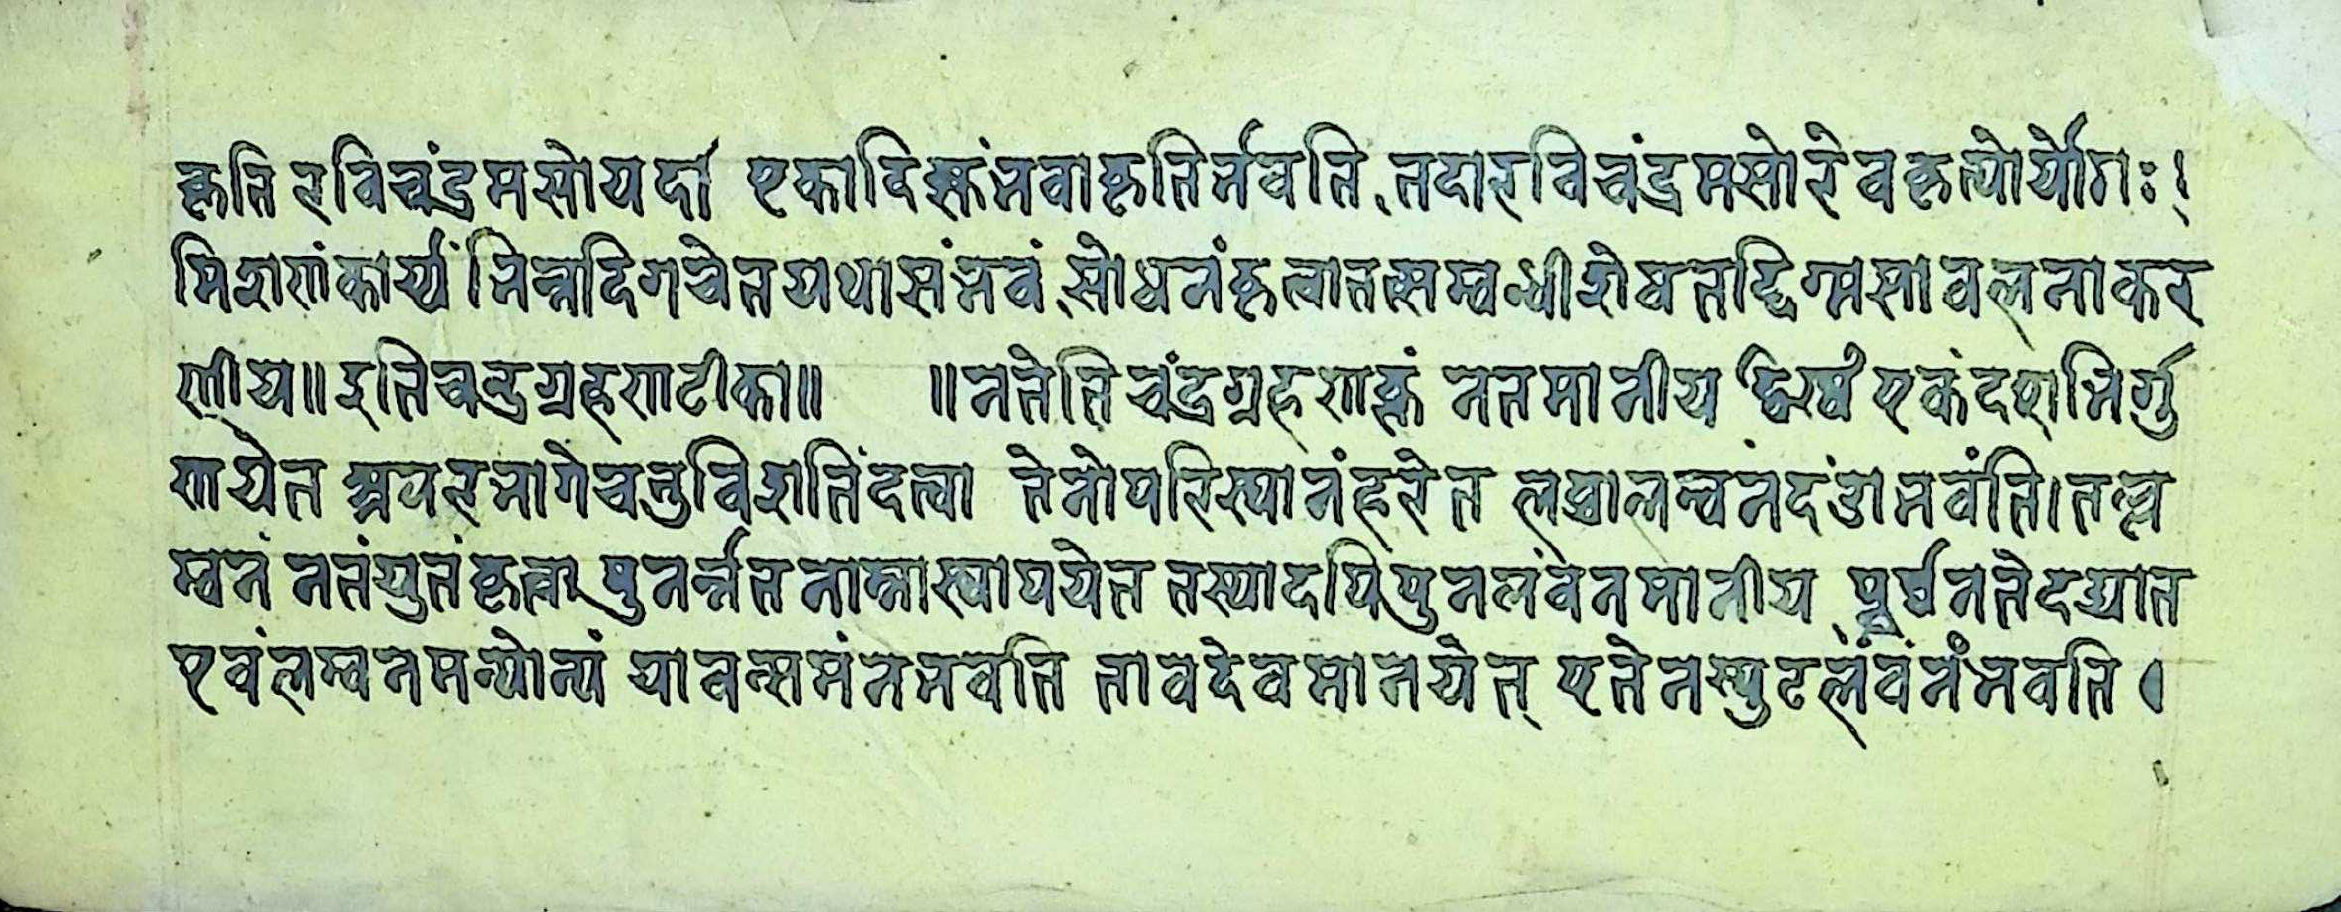 कृति रविचंद्रमसोयदा एकादिक्कंभवाकृतिर्भवति तदारविचंद्रमसोरेवकृत्योर्योगः।
मिशणंकार्य्यं भिन्नदिगचेतयथासंभवं सोधनंकृत्वातत्सम्बन्धीशेषतद्दिग्मसावलनाकर
णीय॥इतिचन्द्रग्रहणटीका॥ ॥नतेतिचंद्रग्रहणाक्तं नतमानीय एकंदशभिर्गु
णयेत अपरभागेचतुविशतिंदत्वा तेनोपरिस्थानंहरेत लब्धालम्बनंदंडाभवंति।तल्ल
म्बनं नतंयुतंकृत्वा पुनर्न्नतनाम्नास्थापयेत तस्यादपिपुनलंवनमानीय पूर्वनतेदद्यात
एवंलम्बनमन्योन्यं यावत्समंनभवति तावदेवमानयेत् एतेनस्फुटलंवनंभवति।